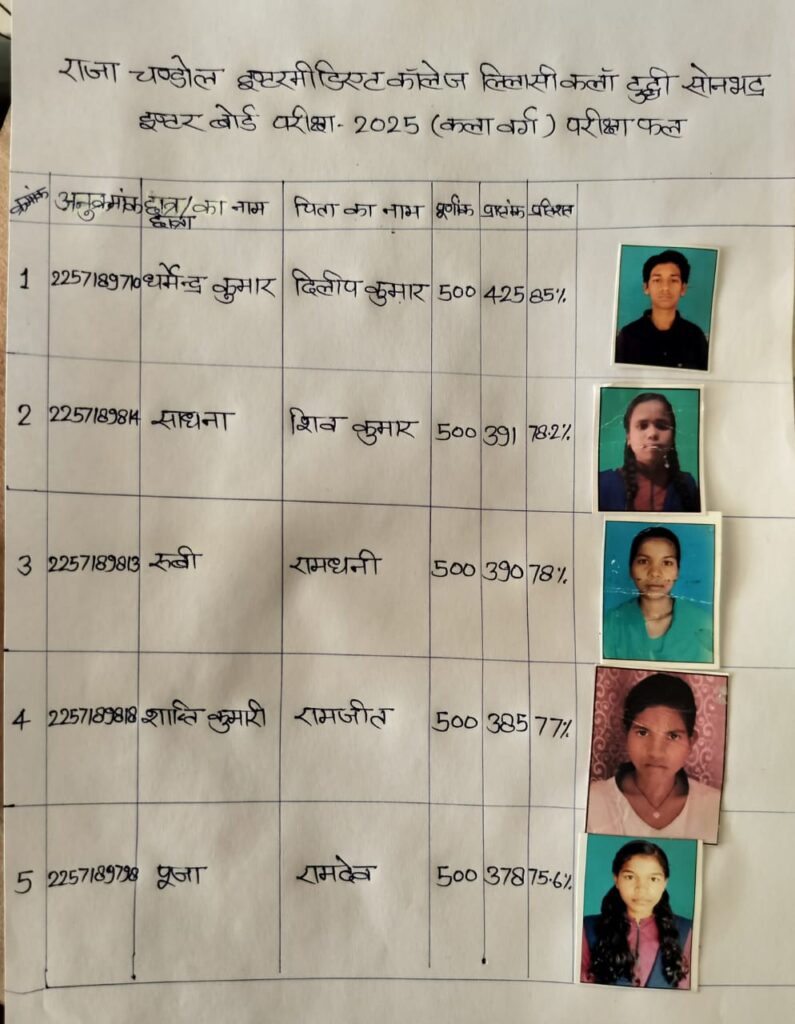 राजा चण्डोल इण्टरमीडिएट कॉलेज लिलासीकलॉ दुद्धी सोनभद्र
इण्टर बोर्ड परीक्षा- 2025 (कला वर्ग) परीक्षाफल
क्रमांक अनुक्रमांक छात्र/छात्रा का नाम पिता का नाम पूर्णांक प्राप्तांक प्रतिशत
1 2257189710 धर्मेन्द्र कुमार दिलीप कुमार 500 425 85%
2 2257189814 साधना शिव कुमार 500 391 78.2%
3 2257189813 रुबी रामधनी 500 390 78%
4 2257189818 शान्ति कुमारी रामजीत 500 385 77%
5 2257189798 पूजा रामदेव 500 378 75.6%